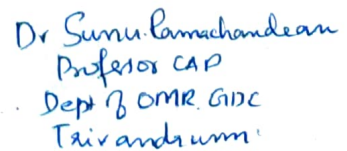 Dr Sunu Ramachandean
Professor CAP
Dept of OMR. GDC
Trivandrum.